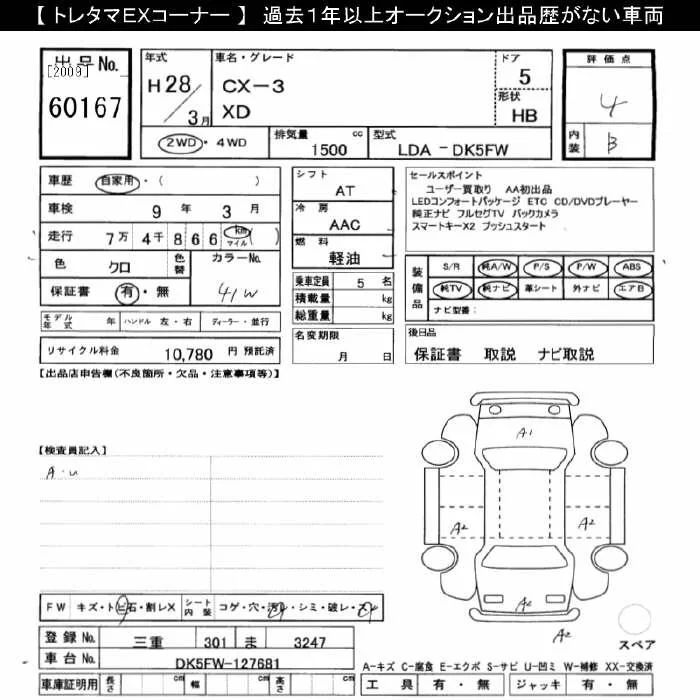 【 トレタマEXコーナー 】 過去1年以上オークション出品歴がない車両
出品No.
[2009]
60167
年式
H28/3月
車名・グレード
CX-3
XD
ドア
5
形状
HB
評価点
4
内装
B
2WD・4WD
排気量 cc
1500
型式
LDA - DK5FW
車歴 自家用・( )
車検 9 年 3 月
走行 7万 4千 8 6 6 km マイル ( )
色 クロ 色替
カラーNo.
41W
保証書 有・無
シフト
AT
冷房
AAC
燃料
軽油
乗車定員 5 名
積載量 kg
総重量 kg
セールスポイント
ユーザー買取り AA初出品
LEDコンフォートパッケージ ETC CD/DVDプレーヤー
純正ナビ フルセグTV バックカメラ
スマートキーX2 プッシュスタート
装備品
S/R 純A/W P/S P/W ABS
純TV 純ナビ 革シート 外ナビ エアB
ナビ型番:
モデル年式 年 ハンドル 左・右 ディーラー・並行
名変期限
月 日
後日品
保証書 取説 ナビ取説
リサイクル料金 10,780 円 預託済
【出品店申告欄(不良箇所・欠品・注意事項等)】
【検査員記入】
A・U
A1
A2
A2
A2
A2
FW キズ・トビ石・割レX シート内装 コゲ・穴・汚レ・シミ・破レ・
登録No. 三重 301 ま 3247
車台No. DK5FW-127681
スペア
A-キズ C-腐食 E-エクボ S-サビ U-凹ミ W-補修 XX-交換済
車庫証明用 長さ cm 幅 cm 高さ cm
工具 有・無 ジャッキ 有・無